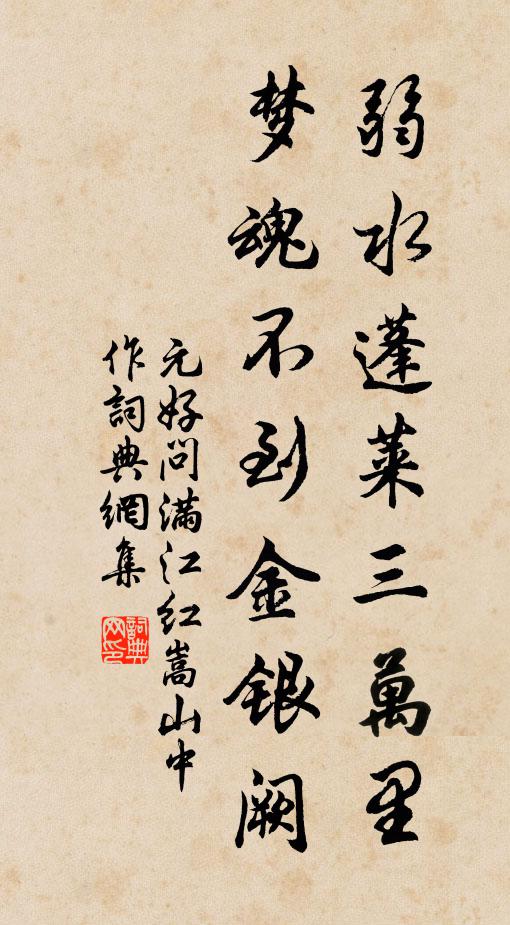 弱水蓬萊三萬里
梦魂不到金銀阙
元好问满江红嵩山中
作詞典網集
詞典网印